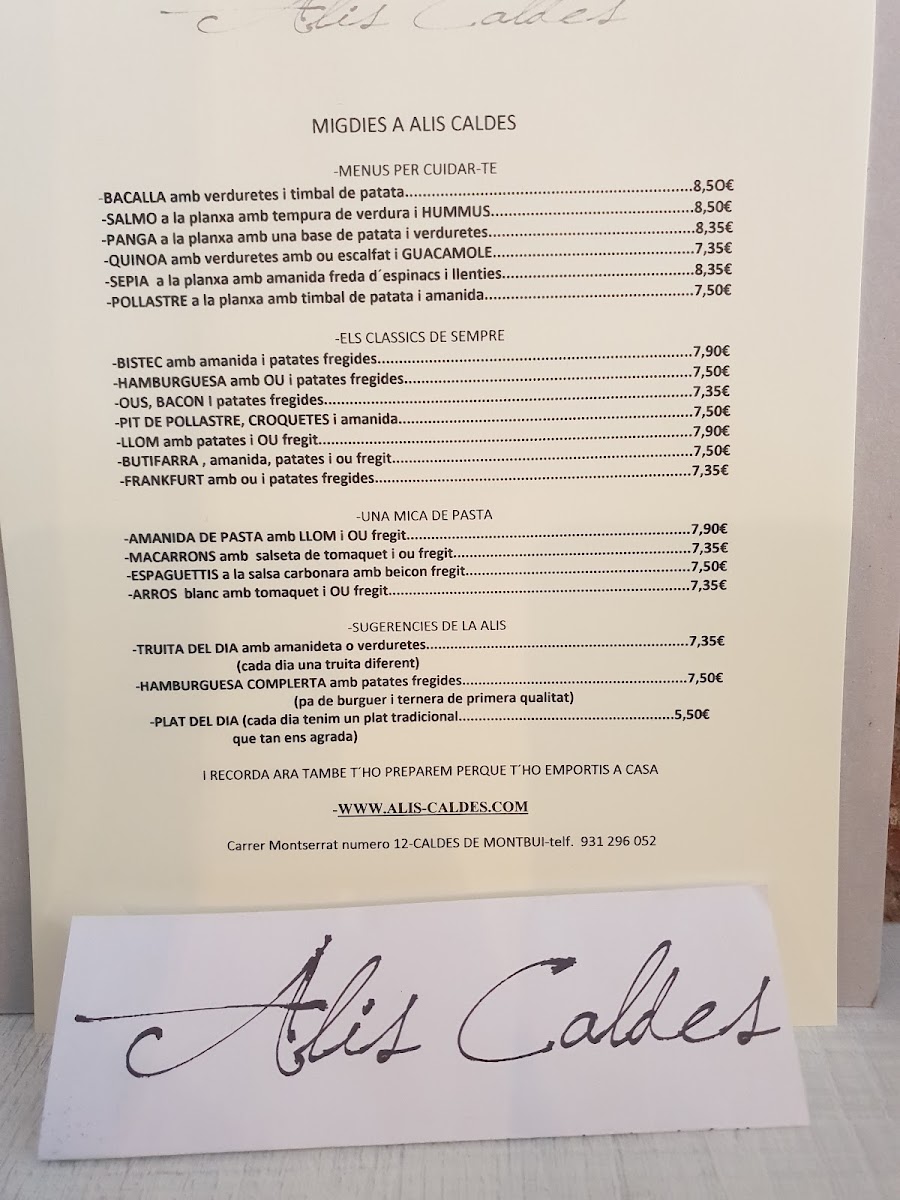 Alis Caldes
MIGDIES A ALIS CALDES
-MENUS PER CUIDAR-TE
-BACALLA amb verduretes i timbal de patata....................................................8,50€
-SALMO a la planxa amb tempura de verdura i HUMMUS.....................................8,50€
-PANGA a la planxa amb una base de patata i verduretes.....................................8,35€
-QUINOA amb verduretes amb ou escalfat i GUACAMOLE.....................................7,35€
-SEPIA a la planxa amb amanida freda d´espinacs i llenties...................................8,35€
-POLLASTRE a la planxa amb timbal de patata i amanida......................................7,50€
-ELS CLASSICS DE SEMPRE
-BISTEC amb amanida i patates fregides..........................................................7,90€
-HAMBURGUESA amb OU i patates fregides.....................................................7,50€
-OUS, BACON I patates fregides....................................................................7,35€
-PIT DE POLLASTRE, CROQUETES i amanida......................................................7,50€
-LLOM amb patates i OU fregit.....................................................................7,90€
-BUTIFARRA , amanida, patates i ou fregit.......................................................7,50€
-FRANKFURT amb ou i patates fregides...........................................................7,35€
-UNA MICA DE PASTA
-AMANIDA DE PASTA amb LLOM i OU fregit....................................................7,90€
-MACARRONS amb salseta de tomaquet i ou fregit............................................7,35€
-ESPAGUETTIS a la salsa carbonara amb beicon fregit.........................................7,50€
-ARROS blanc amb tomaquet i OU fregit........................................................7,35€
-SUGERENCIES DE LA ALIS
-TRUITA DEL DIA amb amanideta o verduretes.................................................7,35€
(cada dia una truita diferent)
-HAMBURGUESA COMPLERTA amb patates fregides..........................................7,50€
(pa de burguer i ternera de primera qualitat)
-PLAT DEL DIA (cada dia tenim un plat tradicional.........................................5,50€
que tan ens agrada)
I RECORDA ARA TAMBE T´HO PREPAREM PERQUE T´HO EMPORTIS A CASA
-WWW.ALIS-CALDES.COM
Carrer Montserrat numero 12-CALDES DE MONTBUI-telf. 931 296 052
Alis Caldes